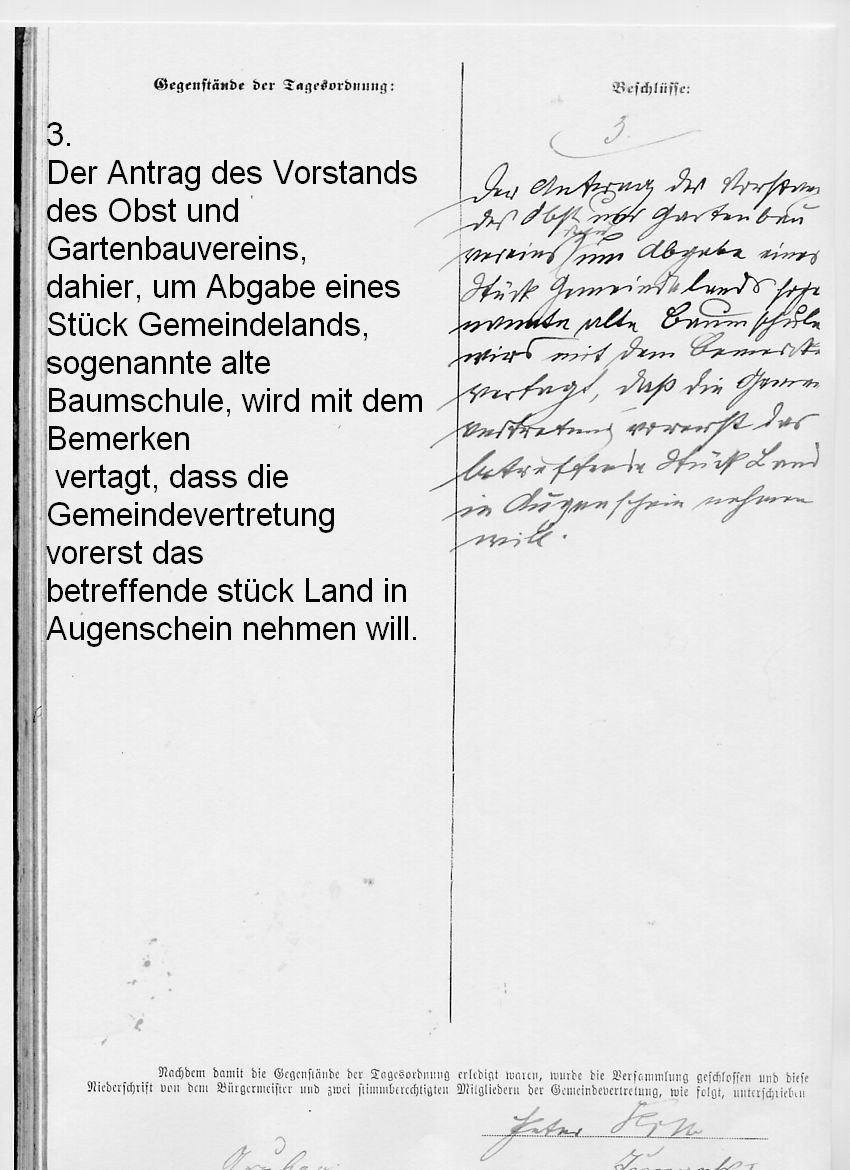 Gegenstände der Tagesordnung:
Beschlüsse:
3.
Der Antrag des Vorstands
des Obst und
Gartenbauvereins,
dahier, um Abgabe eines
Stück Gemeindelands,
sogenannte alte
Baumschule, wird mit dem
Bemerken
vertagt, dass die
Gemeindevertretung
vorerst das
betreffende stück Land in
Augenschein nehmen will.
3.
Der Antrag des Vorstan
des Obst und Gartenbau
vereins dahier um Abgabe eines
Stück Gemeindelands soge
nannte alte Baumschule
wird mit dem Bemerke
vertagt, daß die Gemein
vertretung vorerst das
betreffende Stück Land
in Augenschein nehmen
will.
Nachdem damit die Gegenstände der Tagesordnung erledigt waren, wurde die Versammlung geschlossen und diese
Niederschrift von dem Bürgermeister und zwei stimmberechtigten Mitgliedern der Gemeindevertretung, wie folgt, unterschrieben
Peter